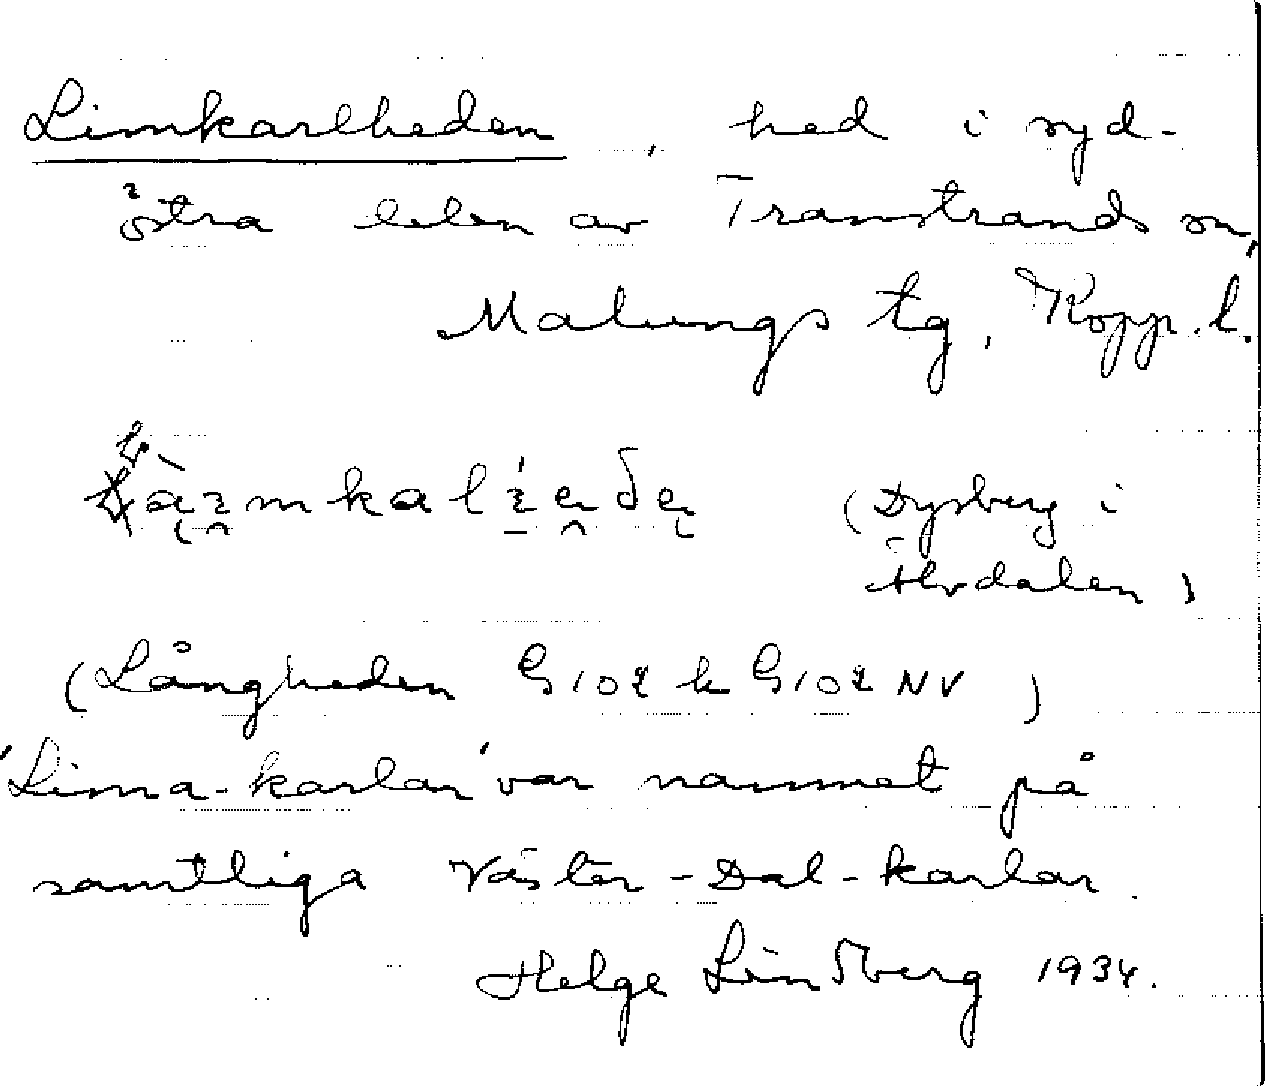 Limkarlheden, hed i syd-
östra delen av Transtrands sn,
Malungs tg, Kopp. l.
(Dysberg i
Älvdalen)
(Långheden G102 h G102 NV)
"Lima-karlar" var namnet på
samtliga Väster-Dal-karlar.
Helge Lindberg 1934.